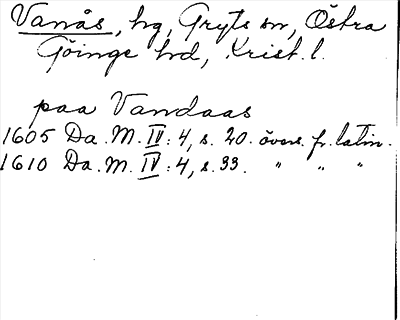 Vanås, hg, Gryts sn, Östra
Göinge hd, Krist. l.
paa Vandaas
1605 Da. M. IV: 4, s. 20. övers. fr. latin.
1610 Da. M. IV: 4, s. 33. " " "